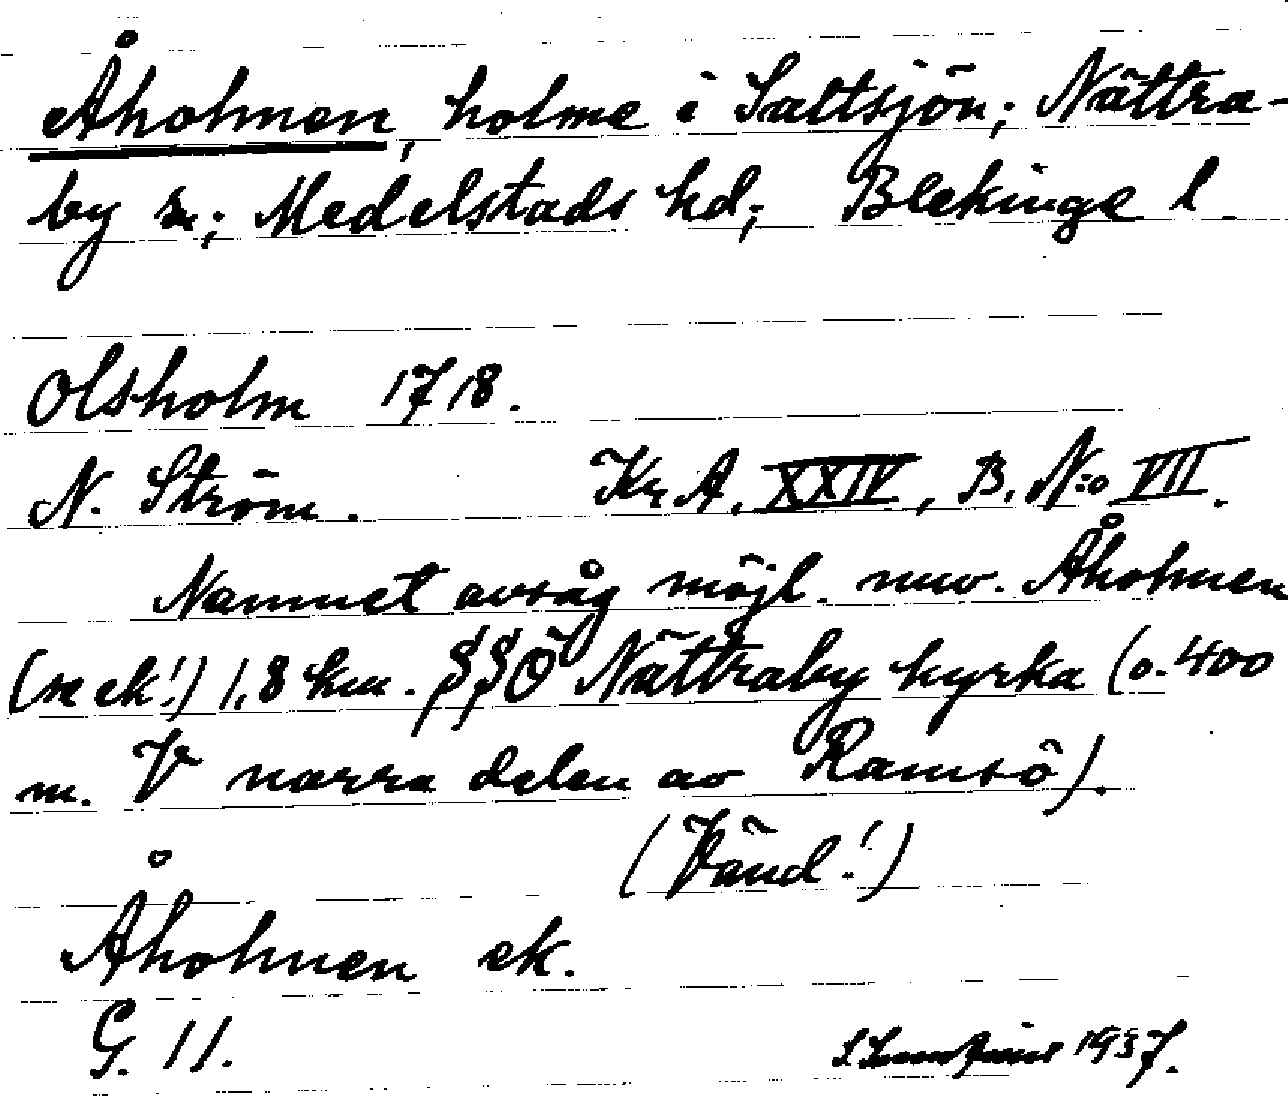 Åholmen, holme i Saltsjön; Nättra-
by sn; Medelstads hd; Blekinge l.
Olsholm 1718.
N. Ström. Kr. A. XXIV, B. N:o VII.
Namnet avsåg möjl. nuv. Åholmen
(se ek!) 1,8 km. SSÖ Nättraby kyrka (o. 400
m. V norra delen av Ramsö).
(Vänd!)
Åholmen ek.
G. 11.
1937.